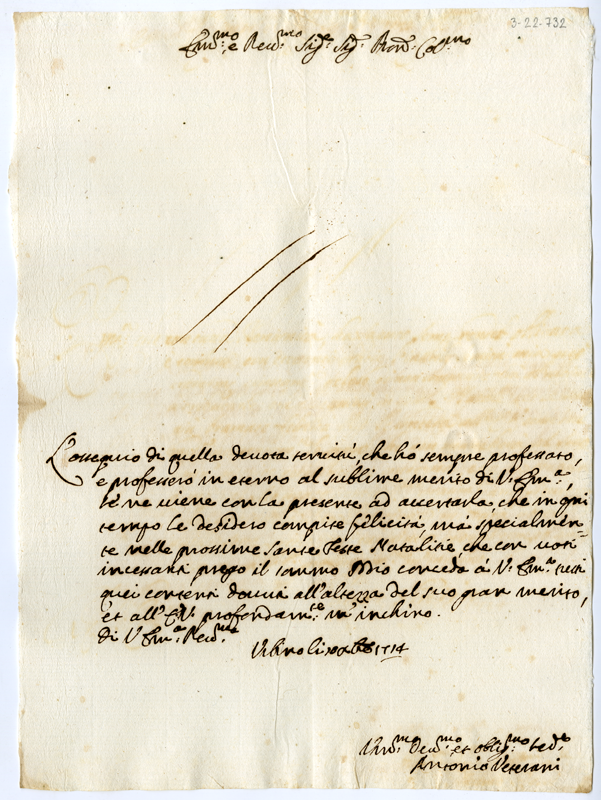 3-22-732
Em:mo e Rev:mo Sig:e Sig:r Pron: Col:mo
L'ossequio di quella devota servitù, che hò sempre professato,
e professerò in eterno al sublime merito di V: Em:a,
se ne viene con la presente ad accertarla, che in ogni
tempo le desidero compite felicità, mà specialmen-
te nelle prossime Sante Feste Natalitie, che con voti
incessanti prego il sommo Iddio conceda à V: Em:a tutti
quei contenti dovuti all'altezza del suo gran merito,
et all'E.V. profondam:te m'inchino.
di V Em:a Rev:ma
Urbino li Xbre 1714
Um:mo Dev:mo et oblig:mo Ser:e
Antonio Veterani